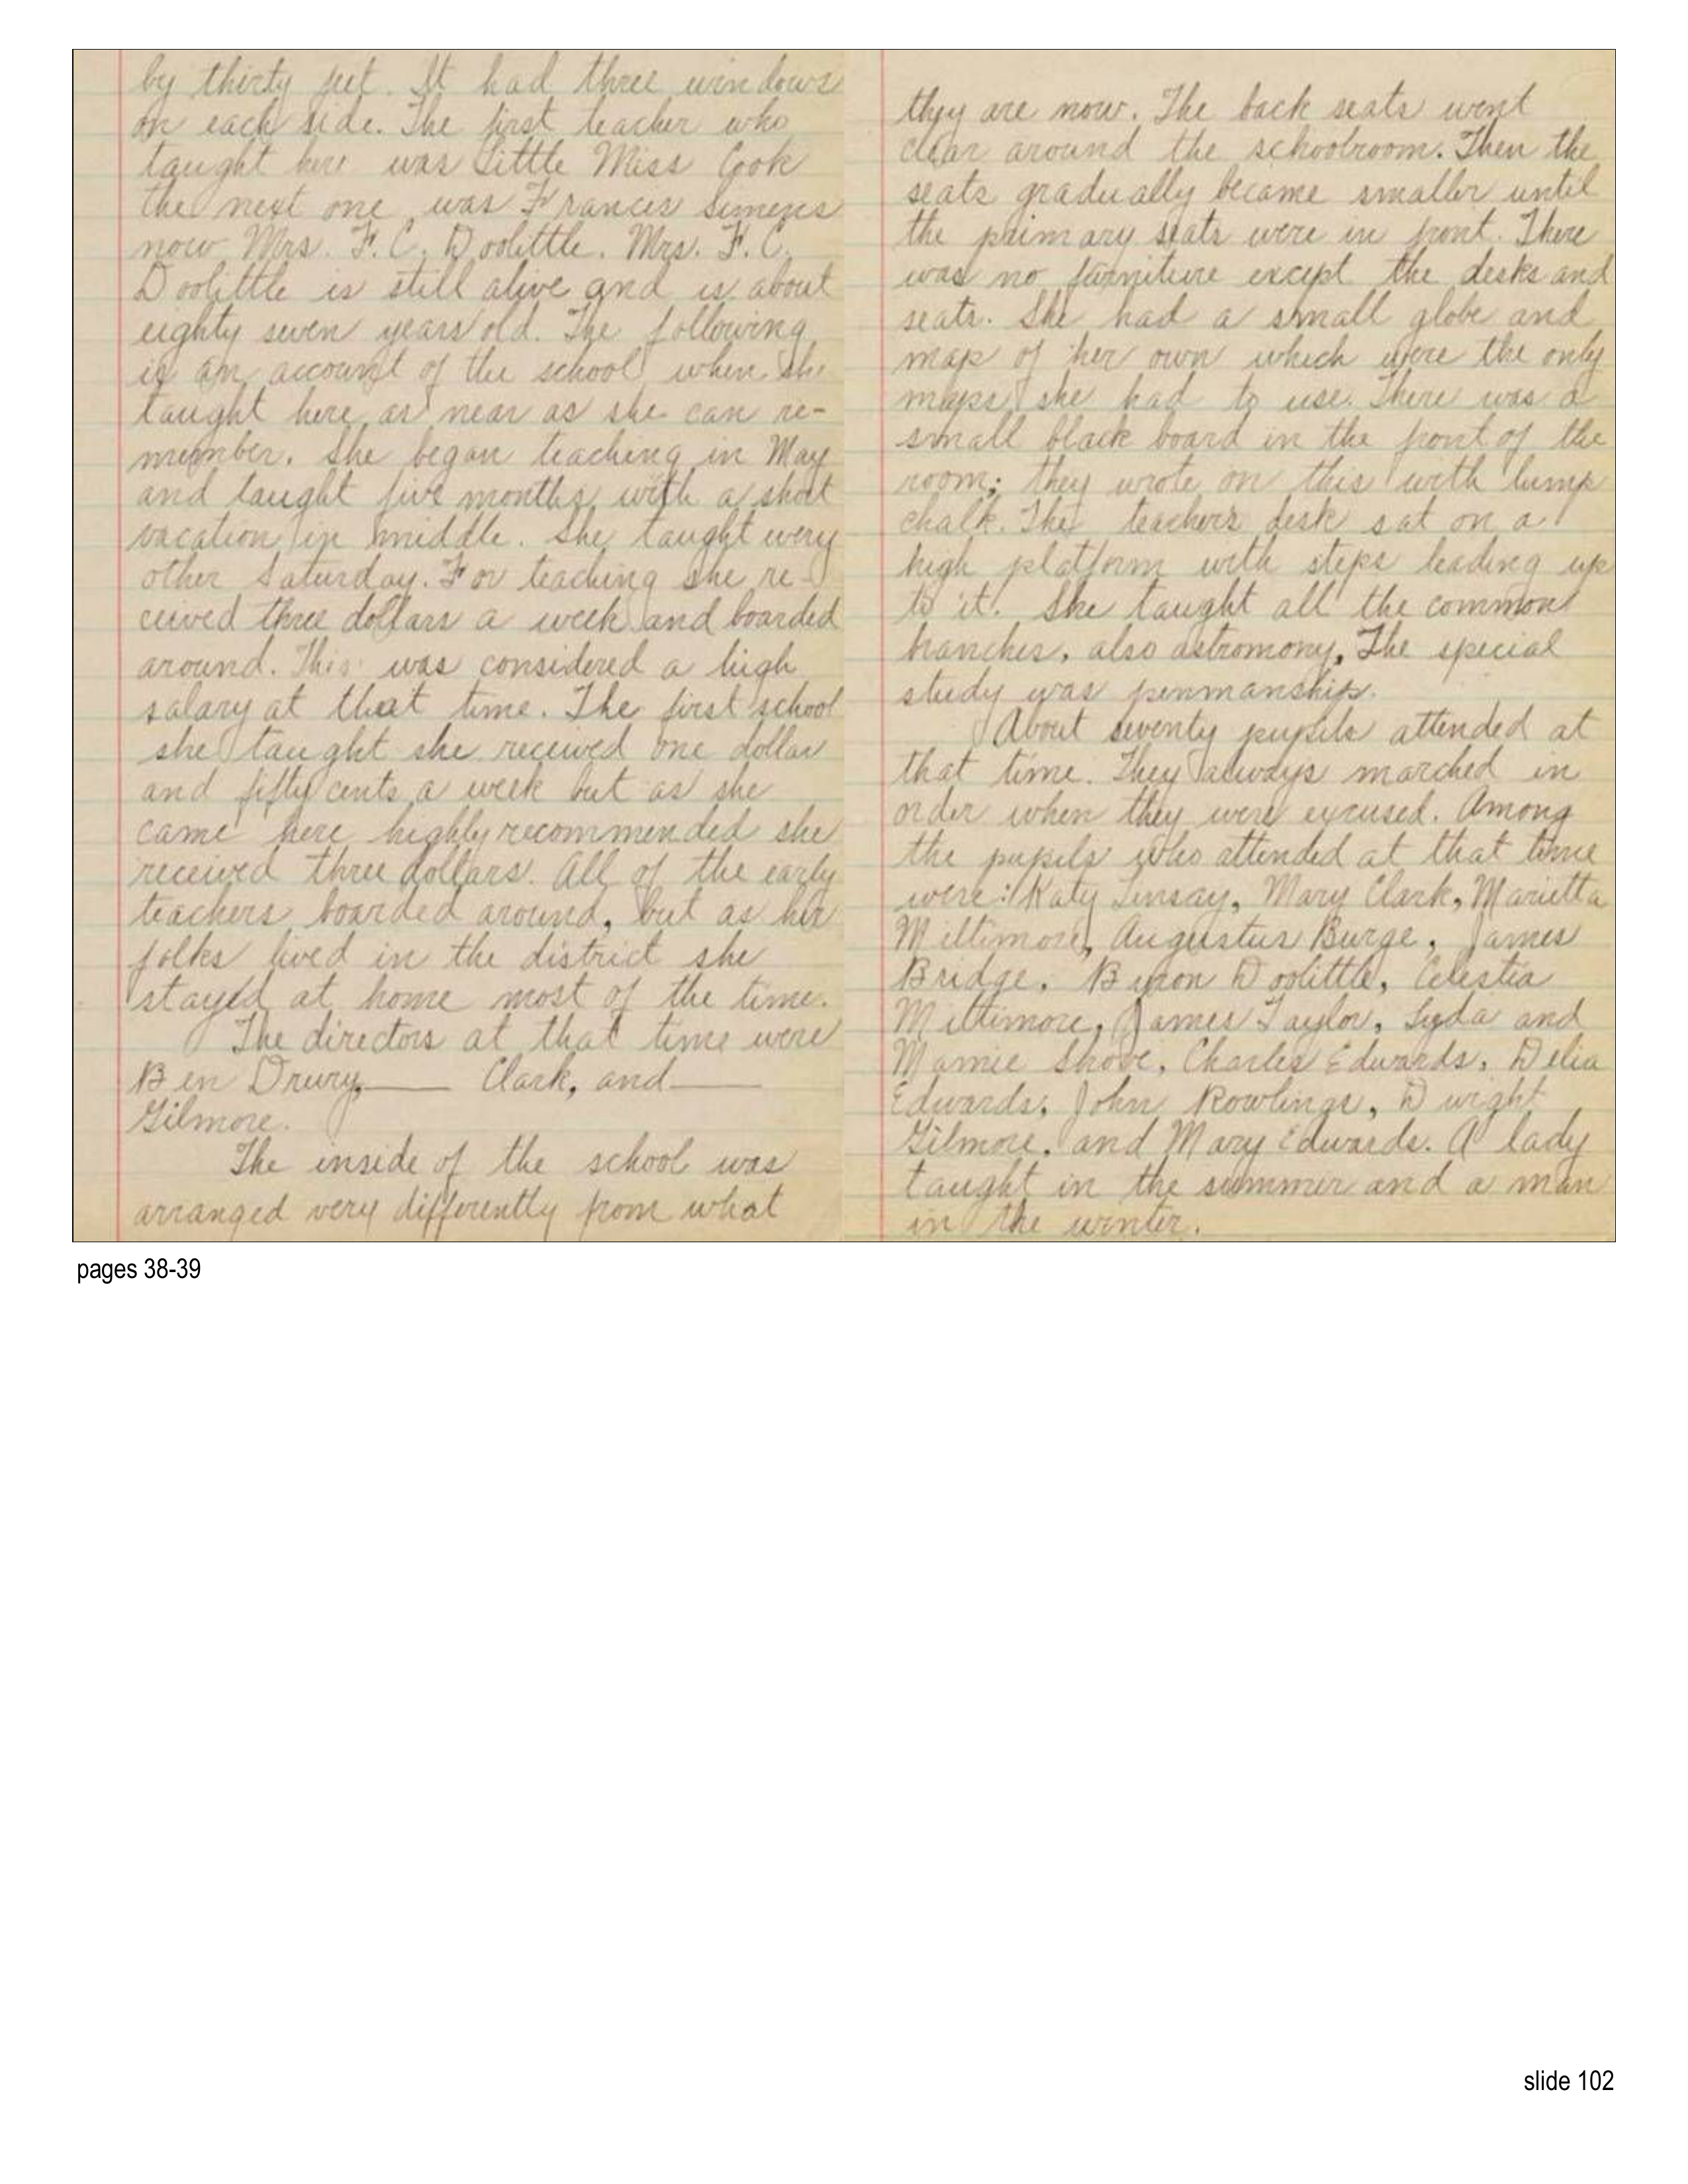 by thirty feet. It had three windows
on each side. The first teacher who
taught here was Little Miss Cook
the next one was Frances Simens
now Mrs. F. C. Doolittle. Mrs. F. C.
Doolittle is still alive and is about
eighty seven years old. The following
is an account of the school when she
taught here as near as she can re-
member. She began teaching in May
and taught five months, with a short
vacation in middle. She taught every
other Saturday. For teaching she re-
ceived three dollars a week and boarded
around. This was considered a high
salary at that time. The first school
she taught she received one dollar
and fifty cents a week but as she
came here highly recommended she
received three dollars. All of the early
teachers boarded around, but as her
folks lived in the district she
stayed at home most of the time.
The directors at that time were
Ben Drury, ____ Clark, and ____
Gilmore.
The inside of the school was
arranged very differently from what
they are now. The back seats went
clear around the schoolroom. Then the
seats gradually became smaller until
the primary seats were in front. There
was no furniture except the desks and
seats. She had a small globe and
map of her own which were the only
maps she had to use. There was a
small black board in the front of the
room; they wrote on this with lump
chalk. The teachers desk sat on a
high platform with steps leading up
to it. She taught all the common
branches, also astromony. The special
study was penmanship.
About seventy pupils attended at
that time. They always marched in
order when they were excused. Among
the pupils who attended at that time
were: Katy Linsay, Mary Clark, Marietta
Miltimore, Augustus Burge, James
Bridge, Byron Doolittle, Celestia
Miltimore, James Taylor, Lyda and
Mamie Shove, Charles Edwards, Delia
Edwards, John Rowlings, Dwight
Gilmore, and Mary Edwards. A lady
taught in the summer and a man
in the winter.
pages 38-39
slide 102